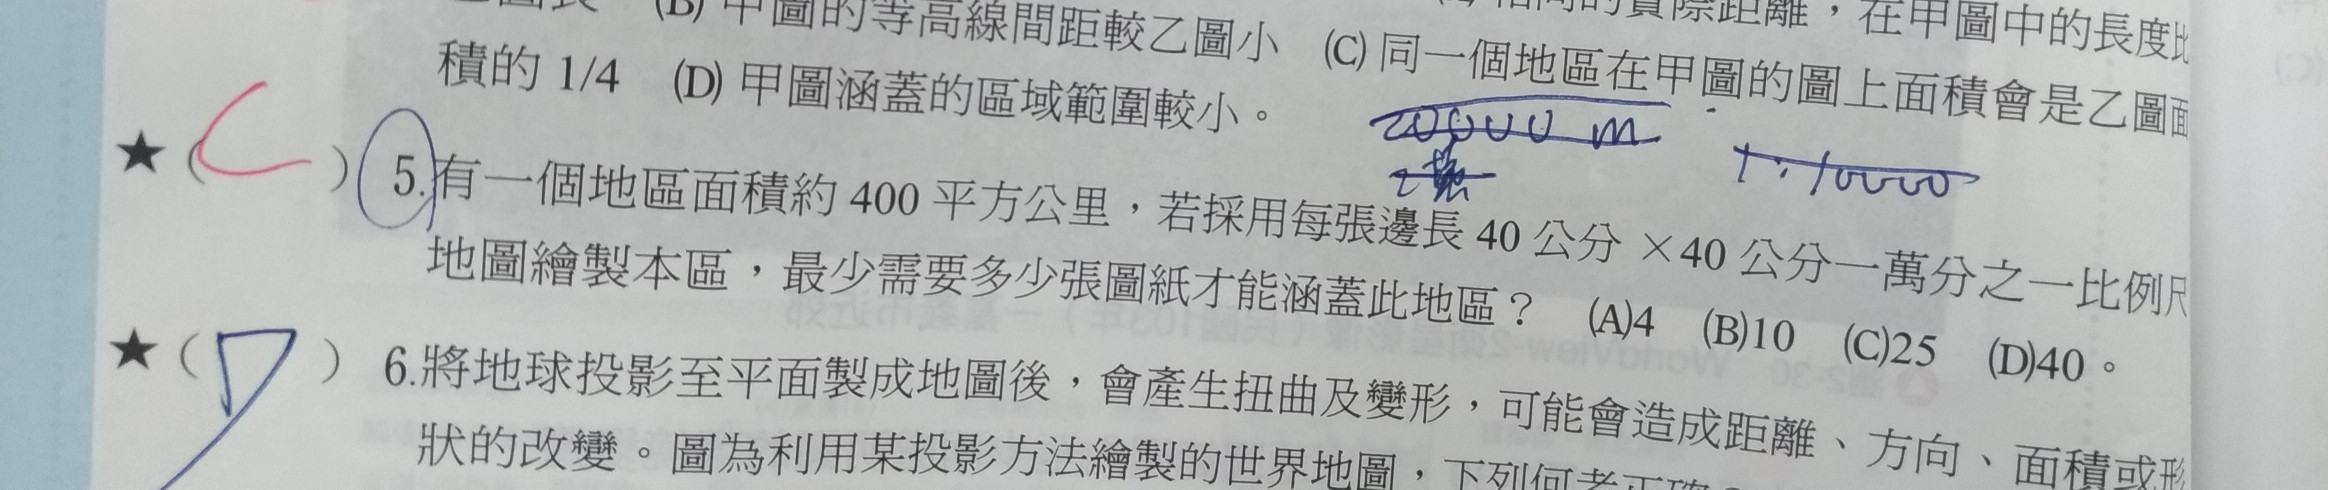 (B) 甲圖的等高線間距較乙圖小 (C) 同一個地區在甲圖的圖上面積會是乙圖面
相同的實際距離，在甲圖中的長度比
積的 1/4 (D) 甲圖涵蓋的區域範圍較小。
20000 m
1:10000
★( C ) 5.有一個地區面積約 400 平方公里，若採用每張邊長 40 公分 ×40 公分一萬分之一比例尺
地圖繪製本區，最少需要多少張圖紙才能涵蓋此地區？ (A)4 (B)10 (C)25 (D)40。
★( D ) 6.將地球投影至平面製成地圖後，會產生扭曲及變形，可能會造成距離、方向、面積或形
狀的改變。圖為利用某投影方法繪製的世界地圖，下列何者正確？